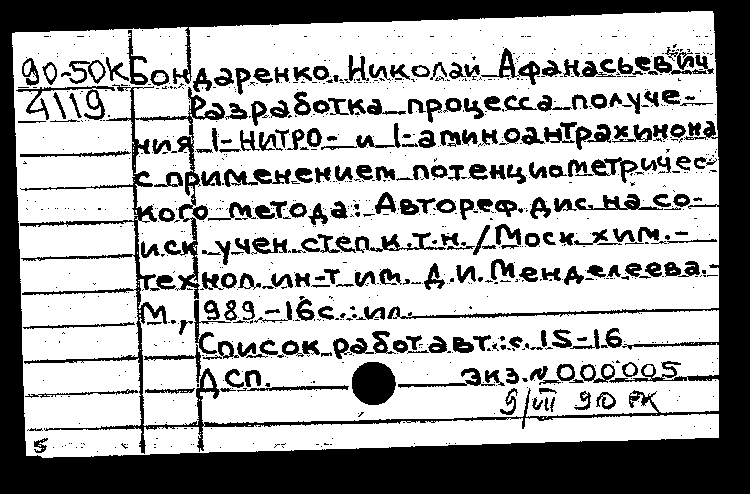 90-50К Бондаренко, Николай Афанасьевич
4119 Разработка процесса получе-
ния 1-НИТРО- и 1-аминоантрахинона
с применением потенциометричес-
кого метода: Автореф. дис. на со-
иск. учен. степ к.т.н. /Моск. хим.-
технол. ин-т им. Д.И. Менделеева.-
М., 1989.-16с.: ил.
Список работ авт.: с. 15-16.
ДСП. экз. № 000005
9/VII 90 РК
5